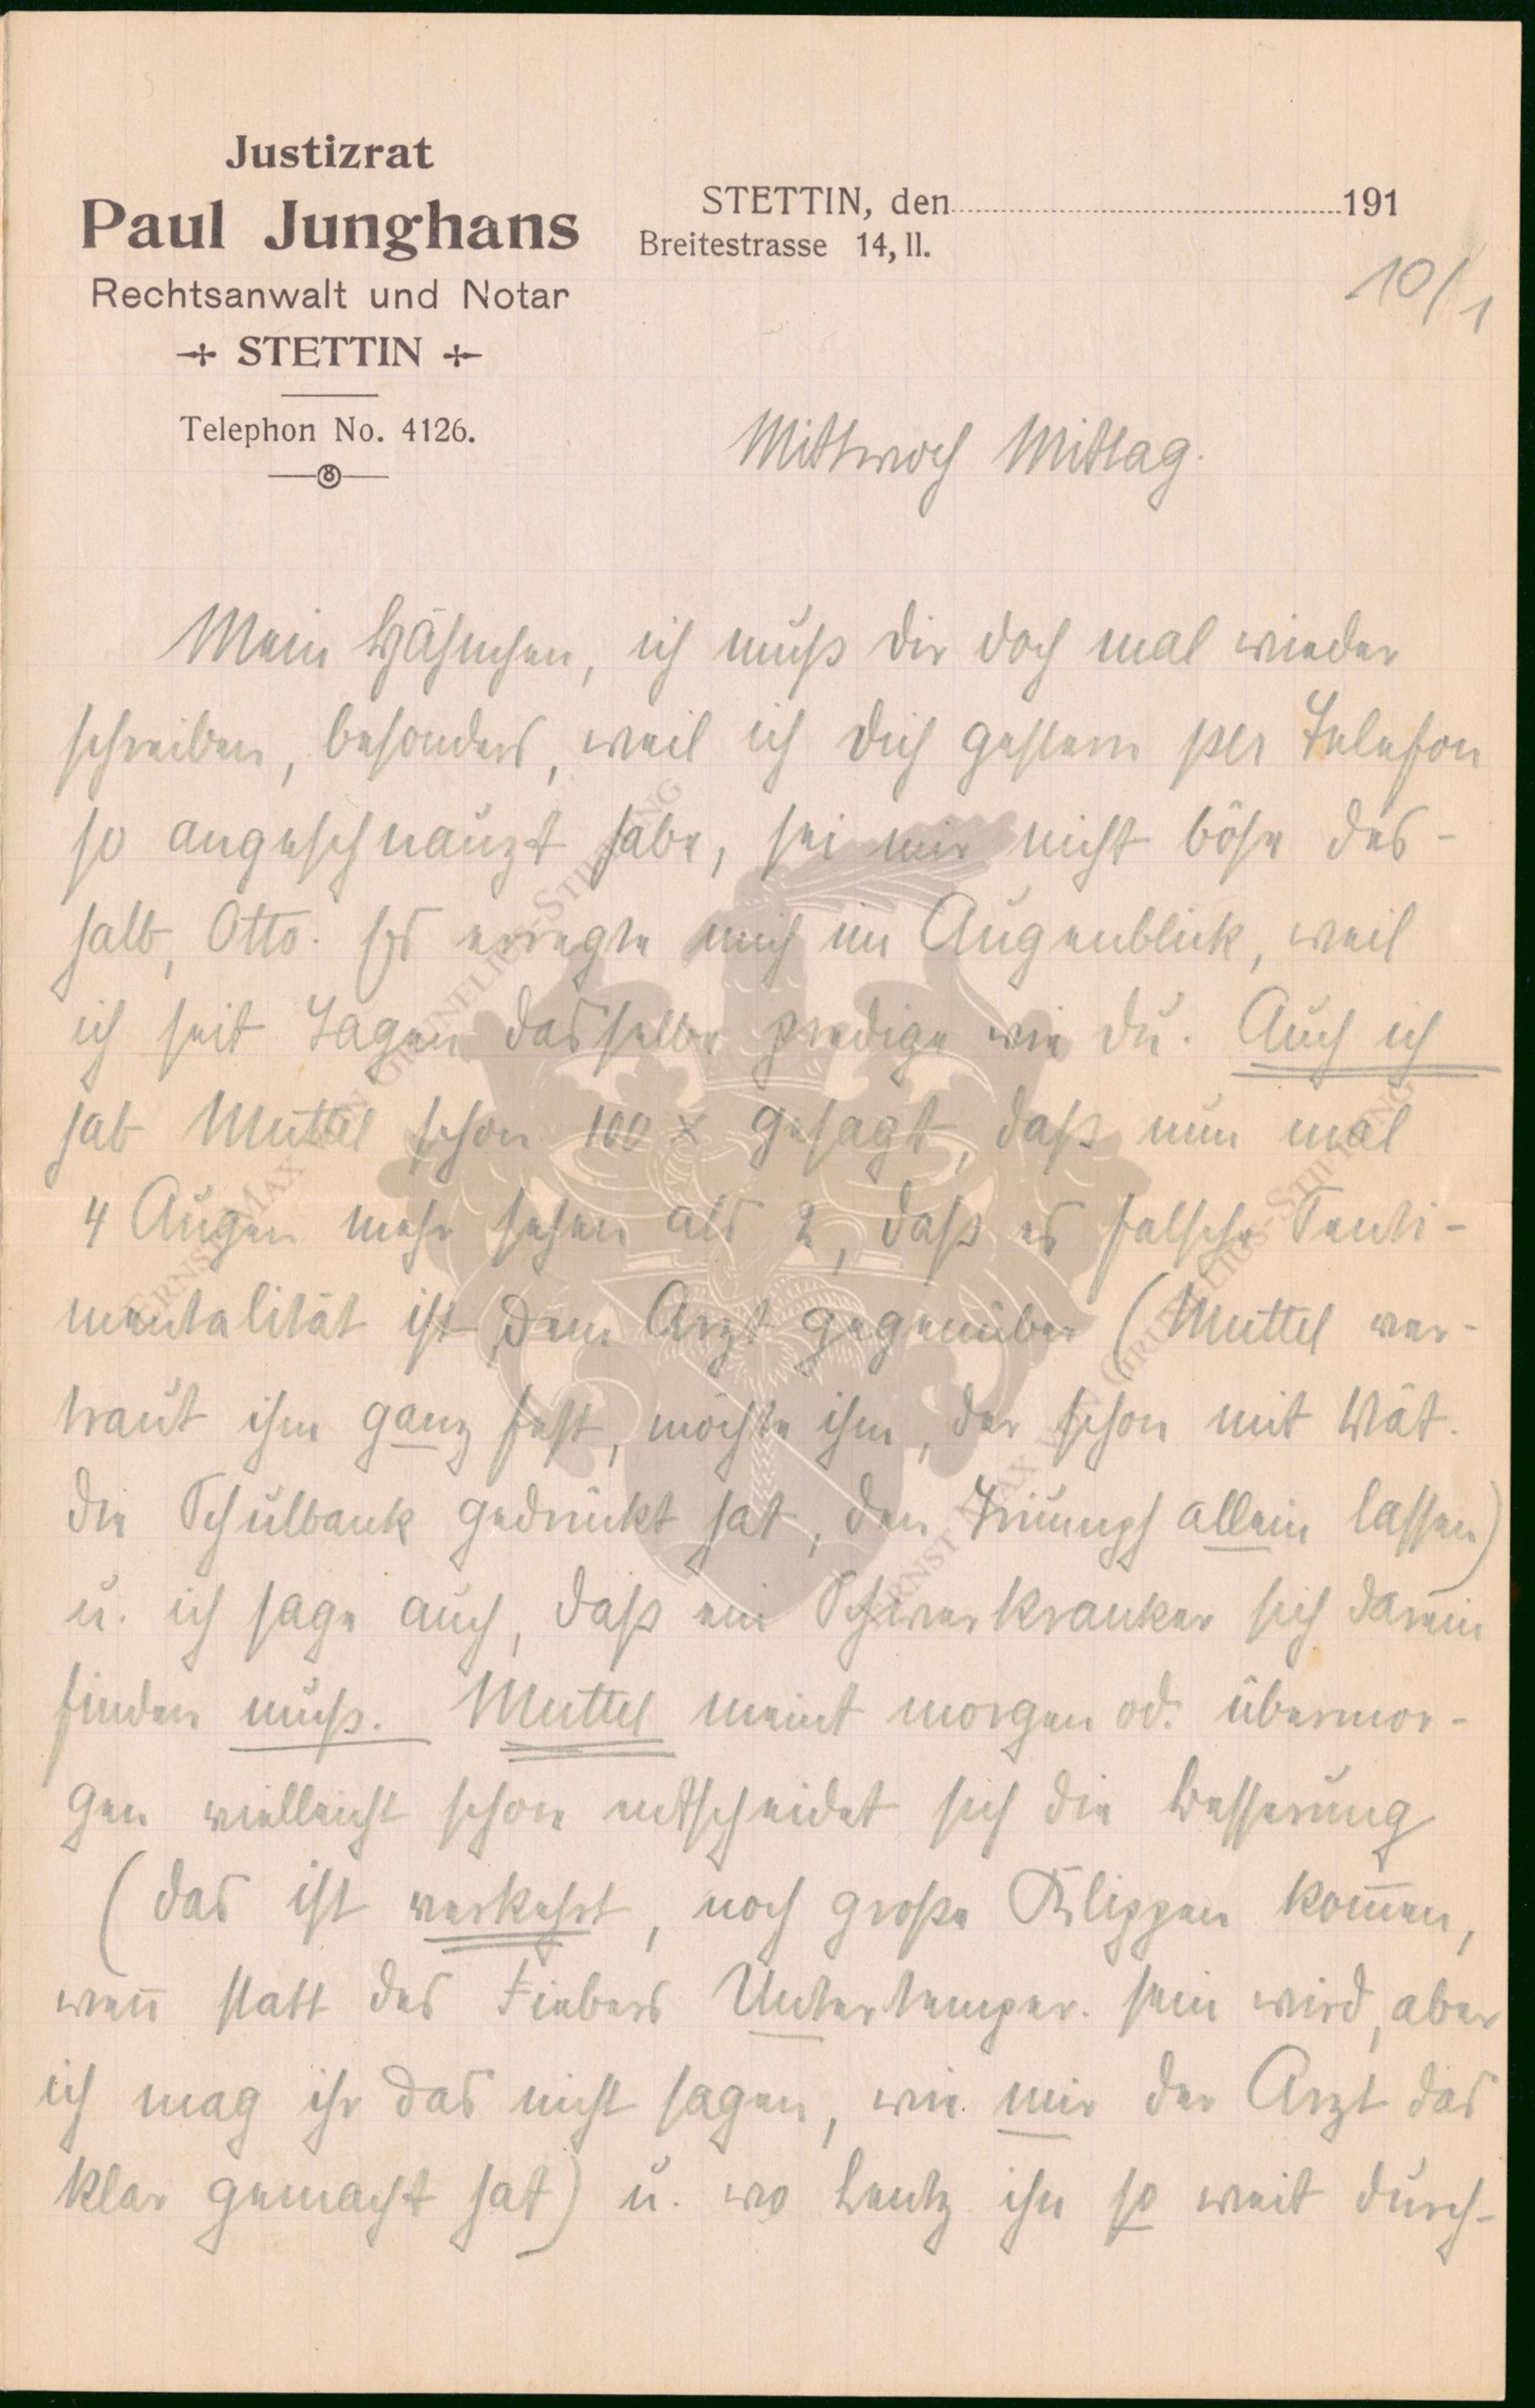 Justizrat
Paul Junghans
Rechtsanwalt und Notar
STETTIN
Telephon No. 4126.
STETTIN, den 191
Breitestrasse 14, II.
10/1
Mittwoch Mittag.
Mein Hähnchen, ich muß Dir doch mal wieder
schreiben, besonders, weil ich Dich gestern per Telefon
so angeschnauzt habe, sei mir nicht böse des-
halb, Otto. Es erregte mich im Augenblick, weil
ich seit Tagen dasselbe predige wie Du. Auch ich
hab Muttel schon 100 x gesagt, daß nun mal
4 Augen mehr sehen als 2, daß es falsche Senti-
mentalität ist, dem Arzt gegenüber (Muttel ver-
traut ihm ganz fest, möchte ihm, der schon mit Vät.
die Schulbank gedrückt hat, den Triumph allein lassen)
u. ich sage auch, daß ein Schwerkranker sich darein
finden muß. Muttel meint morgen od. übermor-
gen vielleicht schon entscheidet sich die Besserung
(das ist verkehrt, noch große Klippen kom̄en,
wen̄ statt des Fiebers Untertemper. sein wird, aber
ich mag ihr das nicht sagen, wie mir der Arzt das
klar gemacht hat) u. wo Lentz ihn so weit durch-
ERNST MAX VON GRUNELIUS-STIFTUNG
ERNST MAX VON GRUNELIUS-STIFTUNG